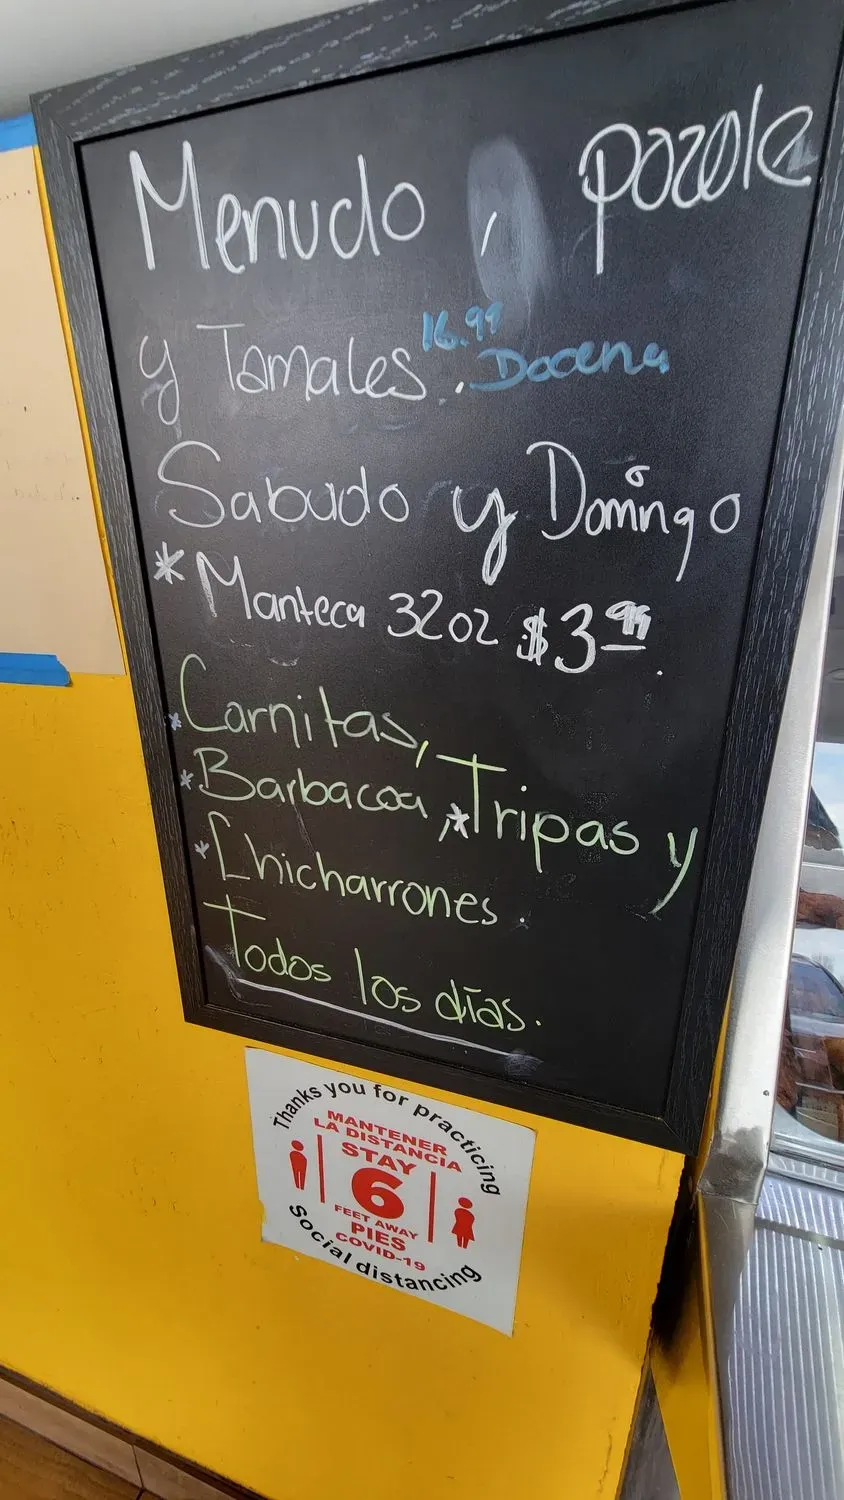 Menudo, pozole
y Tamales. 16.99 Docena
Sabado y Domingo
*Manteca 32oz $3.99.
*Carnitas,
*Barbacoa, *Tripas y
*Chicharrones.
Todos los días.
Thanks you for practicing
MANTENER
LA DISTANCIA
STAY
6
FEET AWAY
PIES
COVID-19
Social distancing